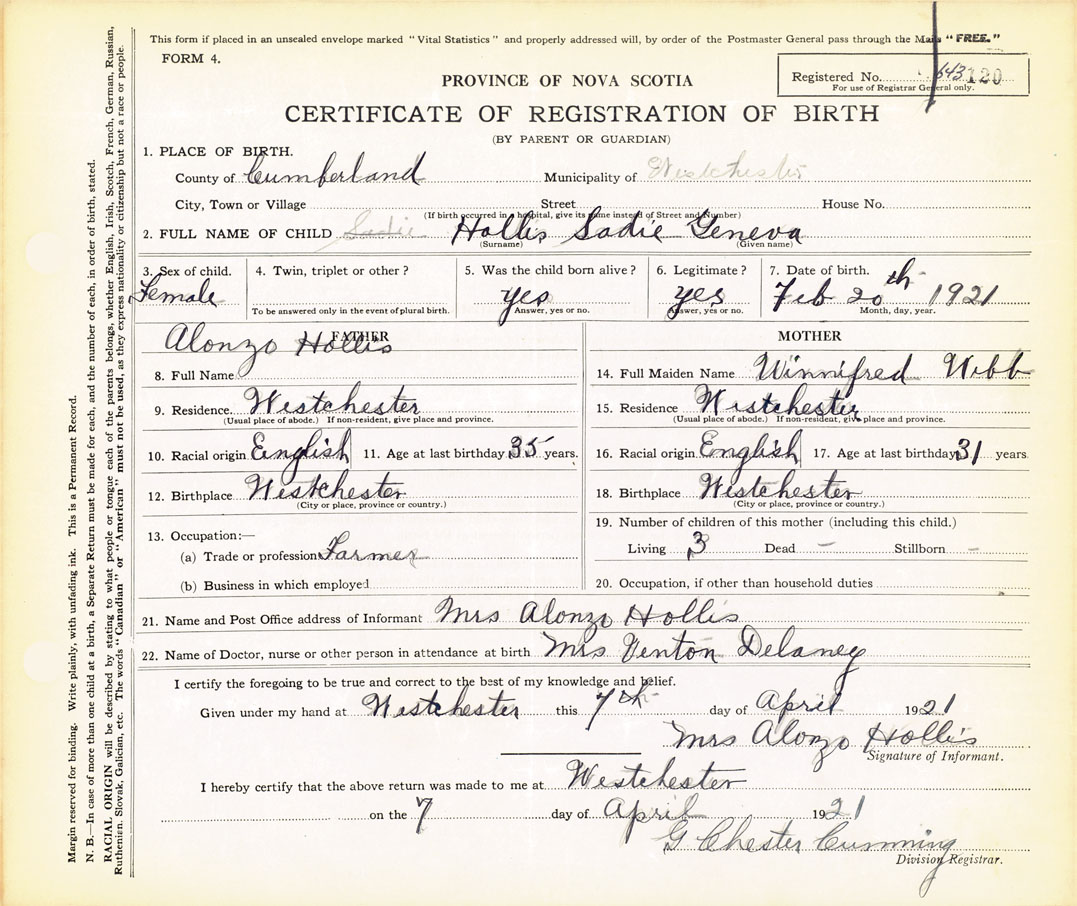 This form if placed in an unsealed envelope marked "Vital Statistics" and properly addressed will, by order of the Postmaster General pass through the Mails "FREE."
FORM 4.
Registered No. 643 120
For use of Registrar General only.
PROVINCE OF NOVA SCOTIA
CERTIFICATE OF REGISTRATION OF BIRTH
(BY PARENT OR GUARDIAN)
1. PLACE OF BIRTH.
County of Cumberland Municipality of Westchester
City, Town or Village Street House No.
(If birth occurred in a hospital, give its name instead of Street and Number)
2. FULL NAME OF CHILD Sadie Hollis Sadie Geneva
(Surname) (Given name)
3. Sex of child. 4. Twin, triplet or other? 5. Was the child born alive? 6. Legitimate? 7. Date of birth.
Female yes yes Feb 20th 1921
To be answered only in the event of plural birth. Answer, yes or no. Answer, yes or no. Month, day, year.
FATHER
Alonzo Hollis
8. Full Name
9. Residence Westchester
(Usual place of abode.) If non-resident, give place and province.
10. Racial origin English 11. Age at last birthday 35 years.
12. Birthplace Westchester
(City or place, province or country.)
13. Occupation:—
(a) Trade or profession Farmer
(b) Business in which employed
MOTHER
14. Full Maiden Name Winnifred Webb
15. Residence Westchester
(Usual place of abode.) If non-resident, give place and province.
16. Racial origin English 17. Age at last birthday 31 years
18. Birthplace Westchester
(City or place, province or country.)
19. Number of children of this mother (including this child.)
Living 3 Dead – Stillborn –
20. Occupation, if other than household duties
21. Name and Post Office address of Informant Mrs Alonzo Hollis
22. Name of Doctor, nurse or other person in attendance at birth Mrs Venton Delaney
I certify the foregoing to be true and correct to the best of my knowledge and belief.
Given under my hand at Westchester this 7th day of April 1921
Mrs Alonzo Hollis
Signature of Informant.
I hereby certify that the above return was made to me at Westchester
on the 7 day of April 1921
G Chester Cumming
Division Registrar.
Margin reserved for binding. Write plainly, with unfading ink. This is a Permanent Record.
N. B.—In case of more than one child at a birth, a Separate Return must be made for each, and the number of each, in order of birth, stated.
RACIAL ORIGIN will be described by stating to what people or tongue each of the parents belongs, whether English, Irish, Scotch, French, German, Russian,
Ruthenien, Slovak, Galician, etc. The words "Canadian" or "American" must not be used, as they express nationality or citizenship but not a race or people.